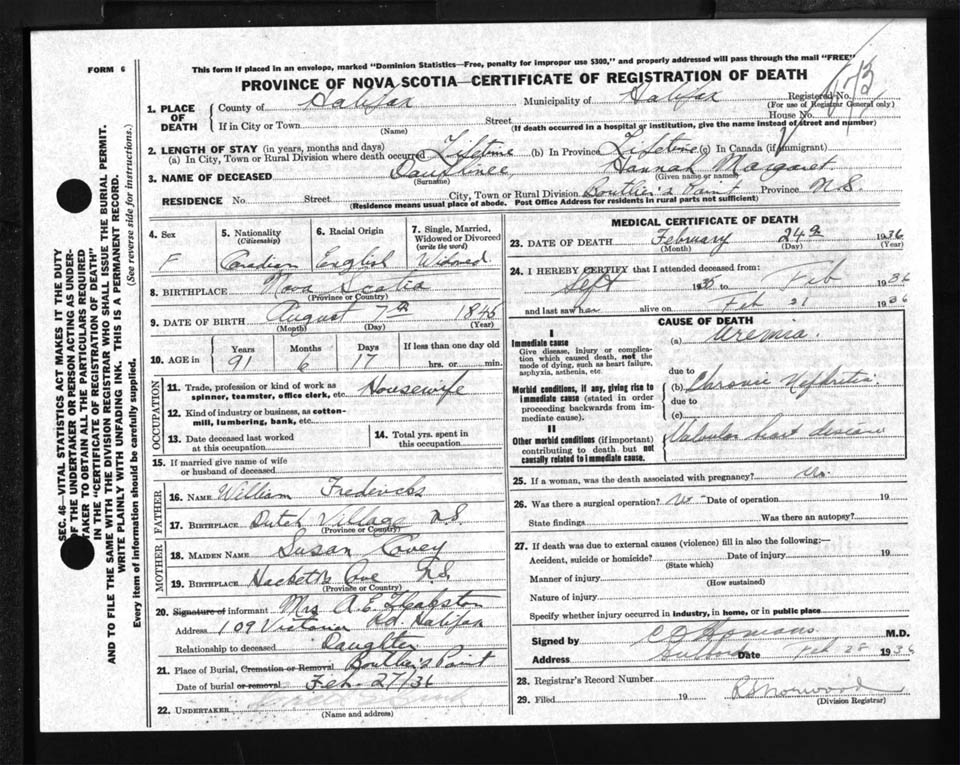 FORM 6
This form if placed in an envelope, marked "Dominion Statistics—Free, penalty for improper use $300," and properly addressed will pass through the mail "FREE"
PROVINCE OF NOVA SCOTIA—CERTIFICATE OF REGISTRATION OF DEATH
1. PLACE OF DEATH
County of Halifax Municipality of Halifax Registered No.
(For use of Registrar General only)
If in City or Town Street House No.
(Name) (If death occurred in a hospital or institution, give the name instead of street and number)
2. LENGTH OF STAY (in years, months and days)
(a) In City, Town or Rural Division where death occurred Lifetime (b) In Province Lifetime (c) In Canada (if immigrant)
3. NAME OF DECEASED Hannah Margaret
(Surname) (Given name or names)
RESIDENCE No. Street City, Town or Rural Division Boutlier's Point Province N.S.
(Residence means usual place of abode. Post Office Address for residents in rural parts not sufficient)
4. Sex F
5. Nationality (Citizenship) Canadian
6. Racial Origin English
7. Single, Married, Widowed or Divorced (write the word) Widowed.
8. BIRTHPLACE Nova Scotia
(Province or Country)
9. DATE OF BIRTH August 7th 1845
(Month) (Day) (Year)
10. AGE in Years Months Days If less than one day old
91 6 17 hrs. or min.
OCCUPATION
11. Trade, profession or kind of work as spinner, teamster, office clerk, etc. Housewife
12. Kind of industry or business, as cotton-mill, lumbering, bank, etc.
13. Date deceased last worked at this occupation
14. Total yrs. spent in this occupation
15. If married give name of wife or husband of deceased
FATHER
16. NAME William Fredericks
17. BIRTHPLACE Dutch Village N.S.
(Province or Country)
MOTHER
18. MAIDEN NAME Susan Covey
19. BIRTHPLACE Hacketts Cove N.S.
(Province or Country)
20. Signature of informant Mrs A.E.
Address 109 Victoria Rd. Halifax
Relationship to deceased Daughter
21. Place of Burial, Cremation or Removal Boutlier's Point
Date of burial or removal Feb. 27/36
22. UNDERTAKER
(Name and address)
MEDICAL CERTIFICATE OF DEATH
23. DATE OF DEATH February 24th 1936
(Month) (Day) (Year)
24. I HEREBY CERTIFY that I attended deceased from:
Sept 1935 to Feb 1936
and last saw her alive on Feb 21 1936
CAUSE OF DEATH
I
Immediate cause
Give disease, injury or complication which caused death, not the mode of dying, such as heart failure, asphyxia, asthenia, etc.
(a) Uremia.
due to
Morbid conditions, if any, giving rise to immediate cause (stated in order proceeding backwards from immediate cause).
(b) Chronic Nephritis
due to
(c)
II
Other morbid conditions (if important) contributing to death but not causally related to immediate cause.
Valvular heart disease
25. If a woman, was the death associated with pregnancy? No.
26. Was there a surgical operation? No Date of operation 19
State findings Was there an autopsy?
27. If death was due to external causes (violence) fill in also the following:—
Accident, suicide or homicide? Date of injury 19
(State which)
Manner of injury
(How sustained)
Nature of injury
Specify whether injury occurred in industry, in home, or in public place
Signed by M.D.
Address Date Feb 28 1936
28. Registrar's Record Number
29. Filed 19
(Division Registrar)
SEC. 46—VITAL STATISTICS ACT MAKES IT THE DUTY
OF THE UNDERTAKER OR PERSON ACTING AS UNDER-
TAKER TO OBTAIN ALL THE PARTICULARS REQUIRED
IN THE "CERTIFICATE OF REGISTRATION OF DEATH"
AND TO FILE THE SAME WITH THE DIVISION REGISTRAR WHO SHALL ISSUE THE BURIAL PERMIT.
WRITE PLAINLY WITH UNFADING INK. THIS IS A PERMANENT RECORD.
Every item of information should be carefully supplied. (See reverse side for instructions.)